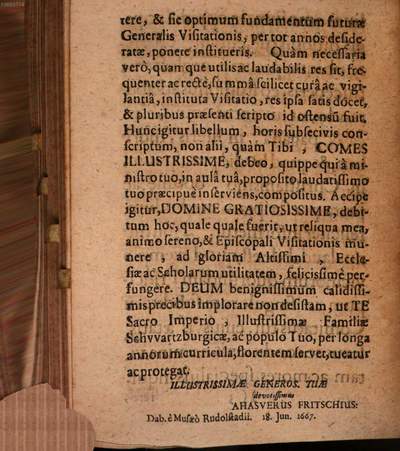 tere, & sic optimum fundamentum futuræ
Generalis Visitationis, per tot annos deside-
ratæ, ponere institueris. Quàm necessaria
verò, quan que utilis ac laudabilis res sit, fre-
quenter ac rectè, summâ scilicet curâ ac vigi-
lantiâ, instituta Visitatio, res ipsa satis docet,
& pluribus præsenti scripto id ostensũ fuit.
Hunc igitur libellum, horis subsecivis con-
scriptum, non alii, quàm Tibi, COMES
ILLUSTRISSIME, debeo, quippe qui à mi-
nistro tuo, in aulâ tuâ, proposito laudatissimo
tuo præcipuè inserviens, compositus. Accipe
igitur, DOMINE GRATIOSISSIME, debi-
tum hoc, quale quale fuerit, ut reliqua mea,
animo sereno, & Episcopali Visitationis mu-
nere, ad gloriam Altissimi, Eccle-
siæ ac Scholarum utilitatem, felicissimè per-
fungere. DEUM benignissimum calidissi-
mis precibus implorare non desistam, ut TE
Sacro Imperio, Illustrissimæ Familiæ
Schvvartzburgicæ, ac populo Tuo, per longa
annorum curricula, florentem servet, tueatur
ac protegat.
ILLUSTRISSIMÆ GENEROS. TUÆ
devotissimus
AHASVERUS FRITSCHIUS.
Dab. è Musæo Rudolstadii. 18. Jun. 1667.